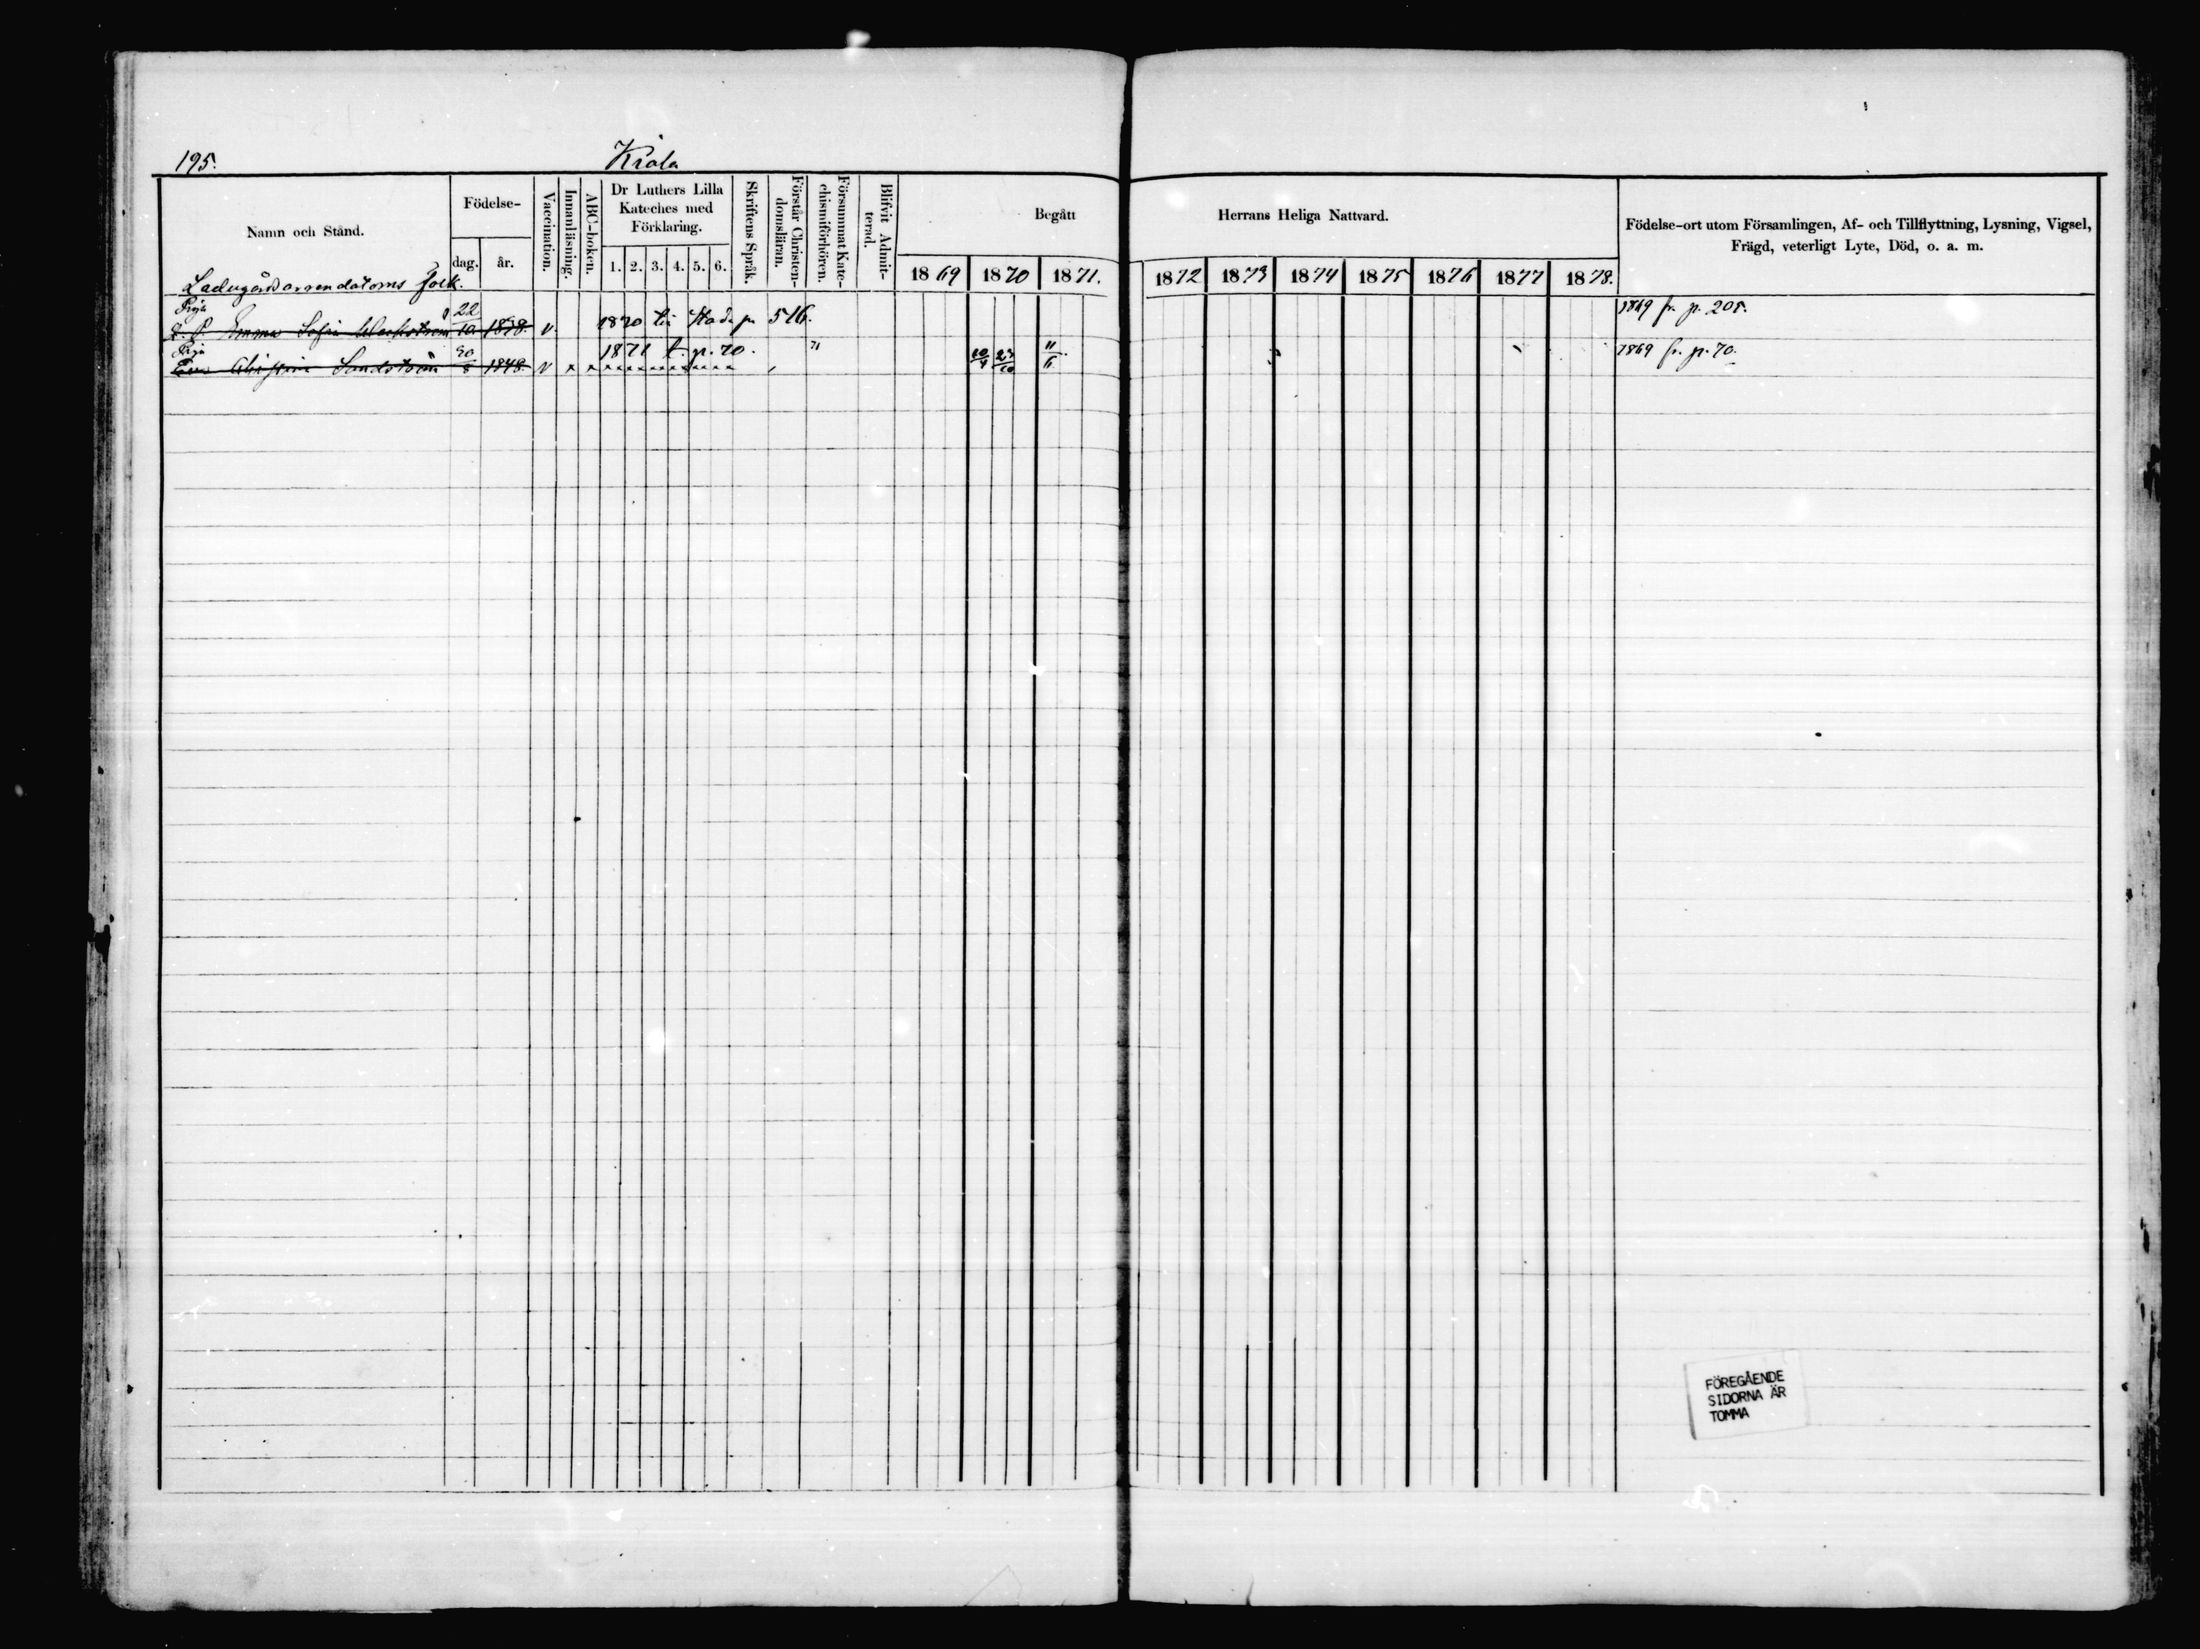 195.
Kiala
Namn och Stånd.
Födelse-
dag. år.
Vaccination.
Innanläsning.
ABC-boken.
Dr Luthers Lilla
Kateches med
Förklaring.
1. 2. 3. 4. 5. 6.
Skriftens Språk.
Förstår Christen-
domsläran.
Försummat Kate-
chismiförhören.
Blifvit Admit-
terad.
Begått Herrans Heliga Nattvard.
1869 1870 1871. 1872 1873 1874 1875 1876 1877 1878.
Födelse-ort utom Församlingen, Af- och Tillflyttning, Lysning, Vigsel,
Frägd, veterligt Lyte, Död, o. a. m.
Ladugårdsarrendatorns folk.
Piga 22
Emma Sofia 10 v. 1870 till Stad. p. 516. 1869 fr. p. 205.
Piga 1871 t. p. 70. 71 1869 fr. p. 70.
Sandström 8 1848. v x 10/4 23/10 11/6
FÖREGÅENDE
SIDORNA ÄR
TOMMA